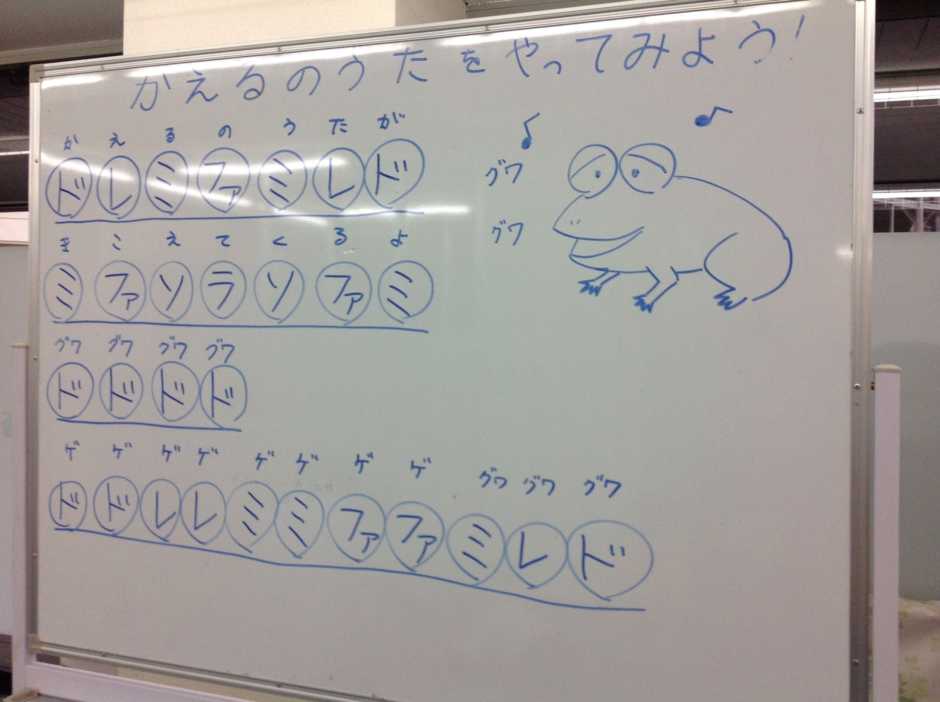 かえるのうたをやってみよう!
かえるのうたが
ドレミファミレド
きこえてくるよ
ミファソラソファミ
グワ グワ グワ グワ
ドドドド
ゲ ゲ ゲ ゲ ゲ ゲ ゲ ゲ グワ グワ グワ
ドドレレミミファファミレド
グワ
グワ